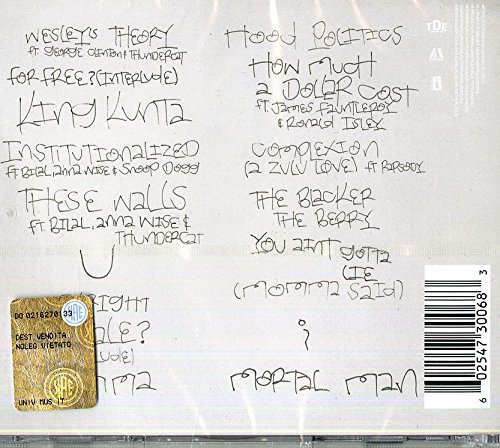 Wesley's Theory
ft. George Clinton & Thundercat
For Free? (Interlude)
King Kunta
Institutionalized
ft. Bilal, Anna Wise & Snoop Dogg
These Walls
ft. Bilal, Anna Wise &
Thundercat
U
right
ale?
ude)
mma
Hood Politics
How Much
a Dollar Cost
ft. James Fauntleroy
& Ronald Isley
Complexion
(a Zulu Love) ft Rapsody
The Blacker
The Berry
You Aint Gotta
Lie
(Momma Said)
i
Mortal Man
TDE
DO 0216270133
SIAE
DEST.VENDITA
NOLEG.VIETATO
UNIV MUS IT
6 02547 30068 3